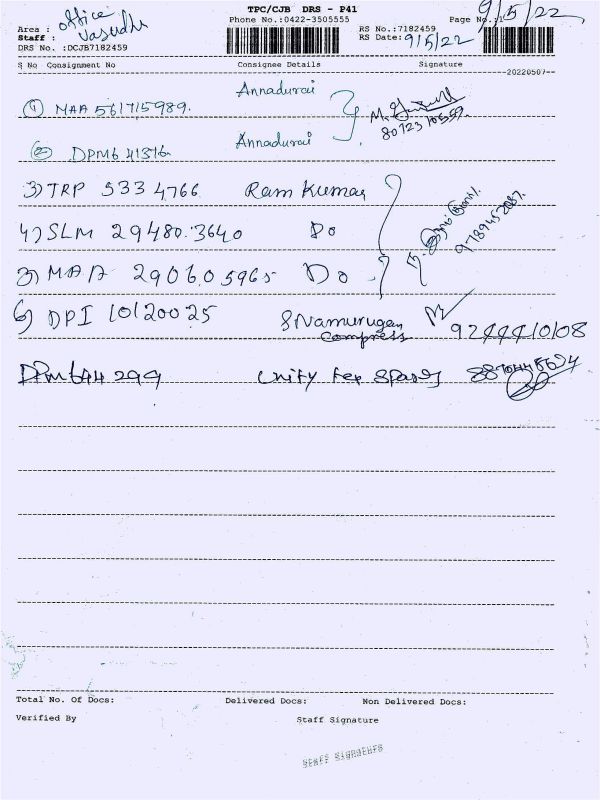 TPC/CJB DRS - P41
Phone No.:0422-3505555 Page No.:1 9/5/22
Area : office
Staff : Vasudha
DRS No. :DCJB7182459
RS No.:7182459
RS Date: 9/5/22
S No Consignment No Consignee Details Signature
20220507
① MAA 561715989. Annadurai
② DPM6 41376 Annadurai
3) TRP 533 4766 Ram Kumar
4) SLM 29480.3640 Do 9789452087.
5) MAA 290605965 Do
6) DPI 10120025 9244410108
compress
DPM644299 Unity
Total No. Of Docs: Delivered Docs: Non Delivered Docs:
Verified By Staff Signature